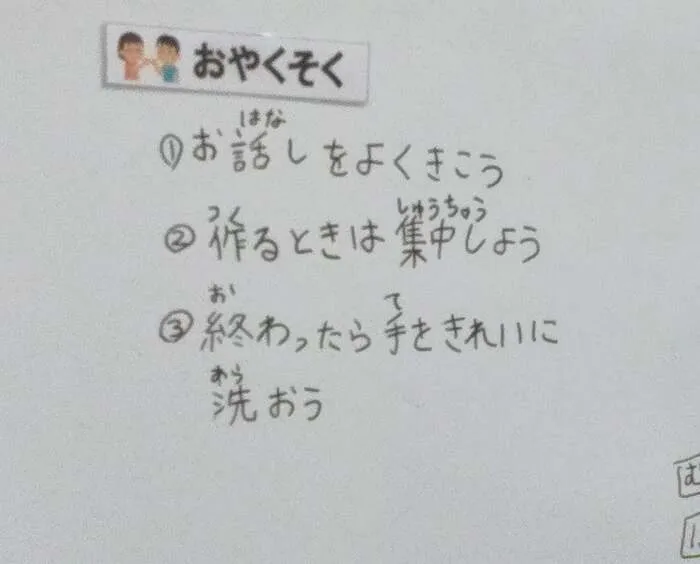 おやくそく
はな
①お話しをよくきこう
つく しゅうちゅう
②作るときは集中しよう
お て
③終わったら手をきれいに
あら
洗おう
む